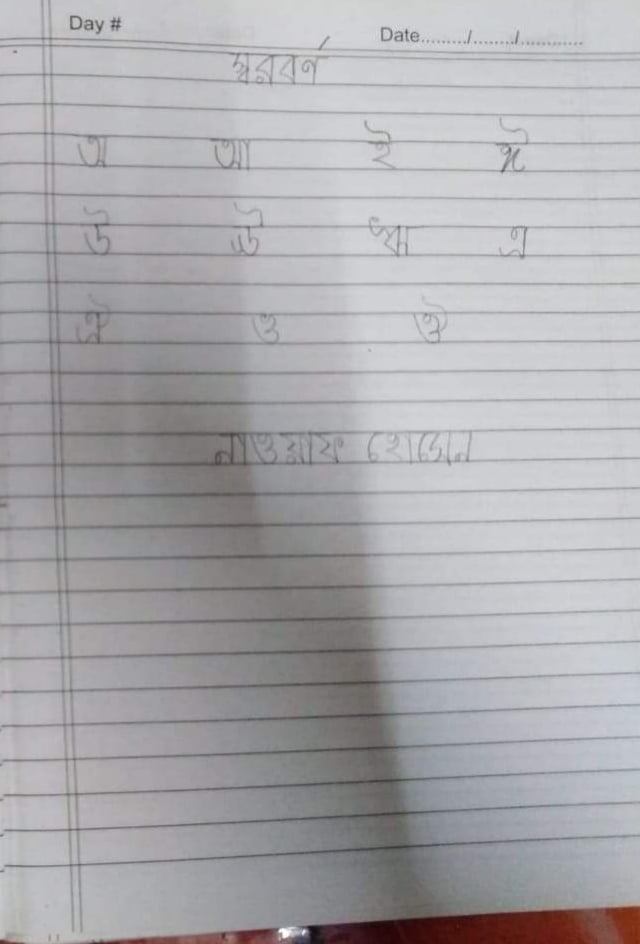 Day #
Date........./........./.............
স্বরবর্ণ
অ আ ই ঈ
উ ঊ ঋ এ
ঐ ও ঔ
নাওয়াফ হোসেন